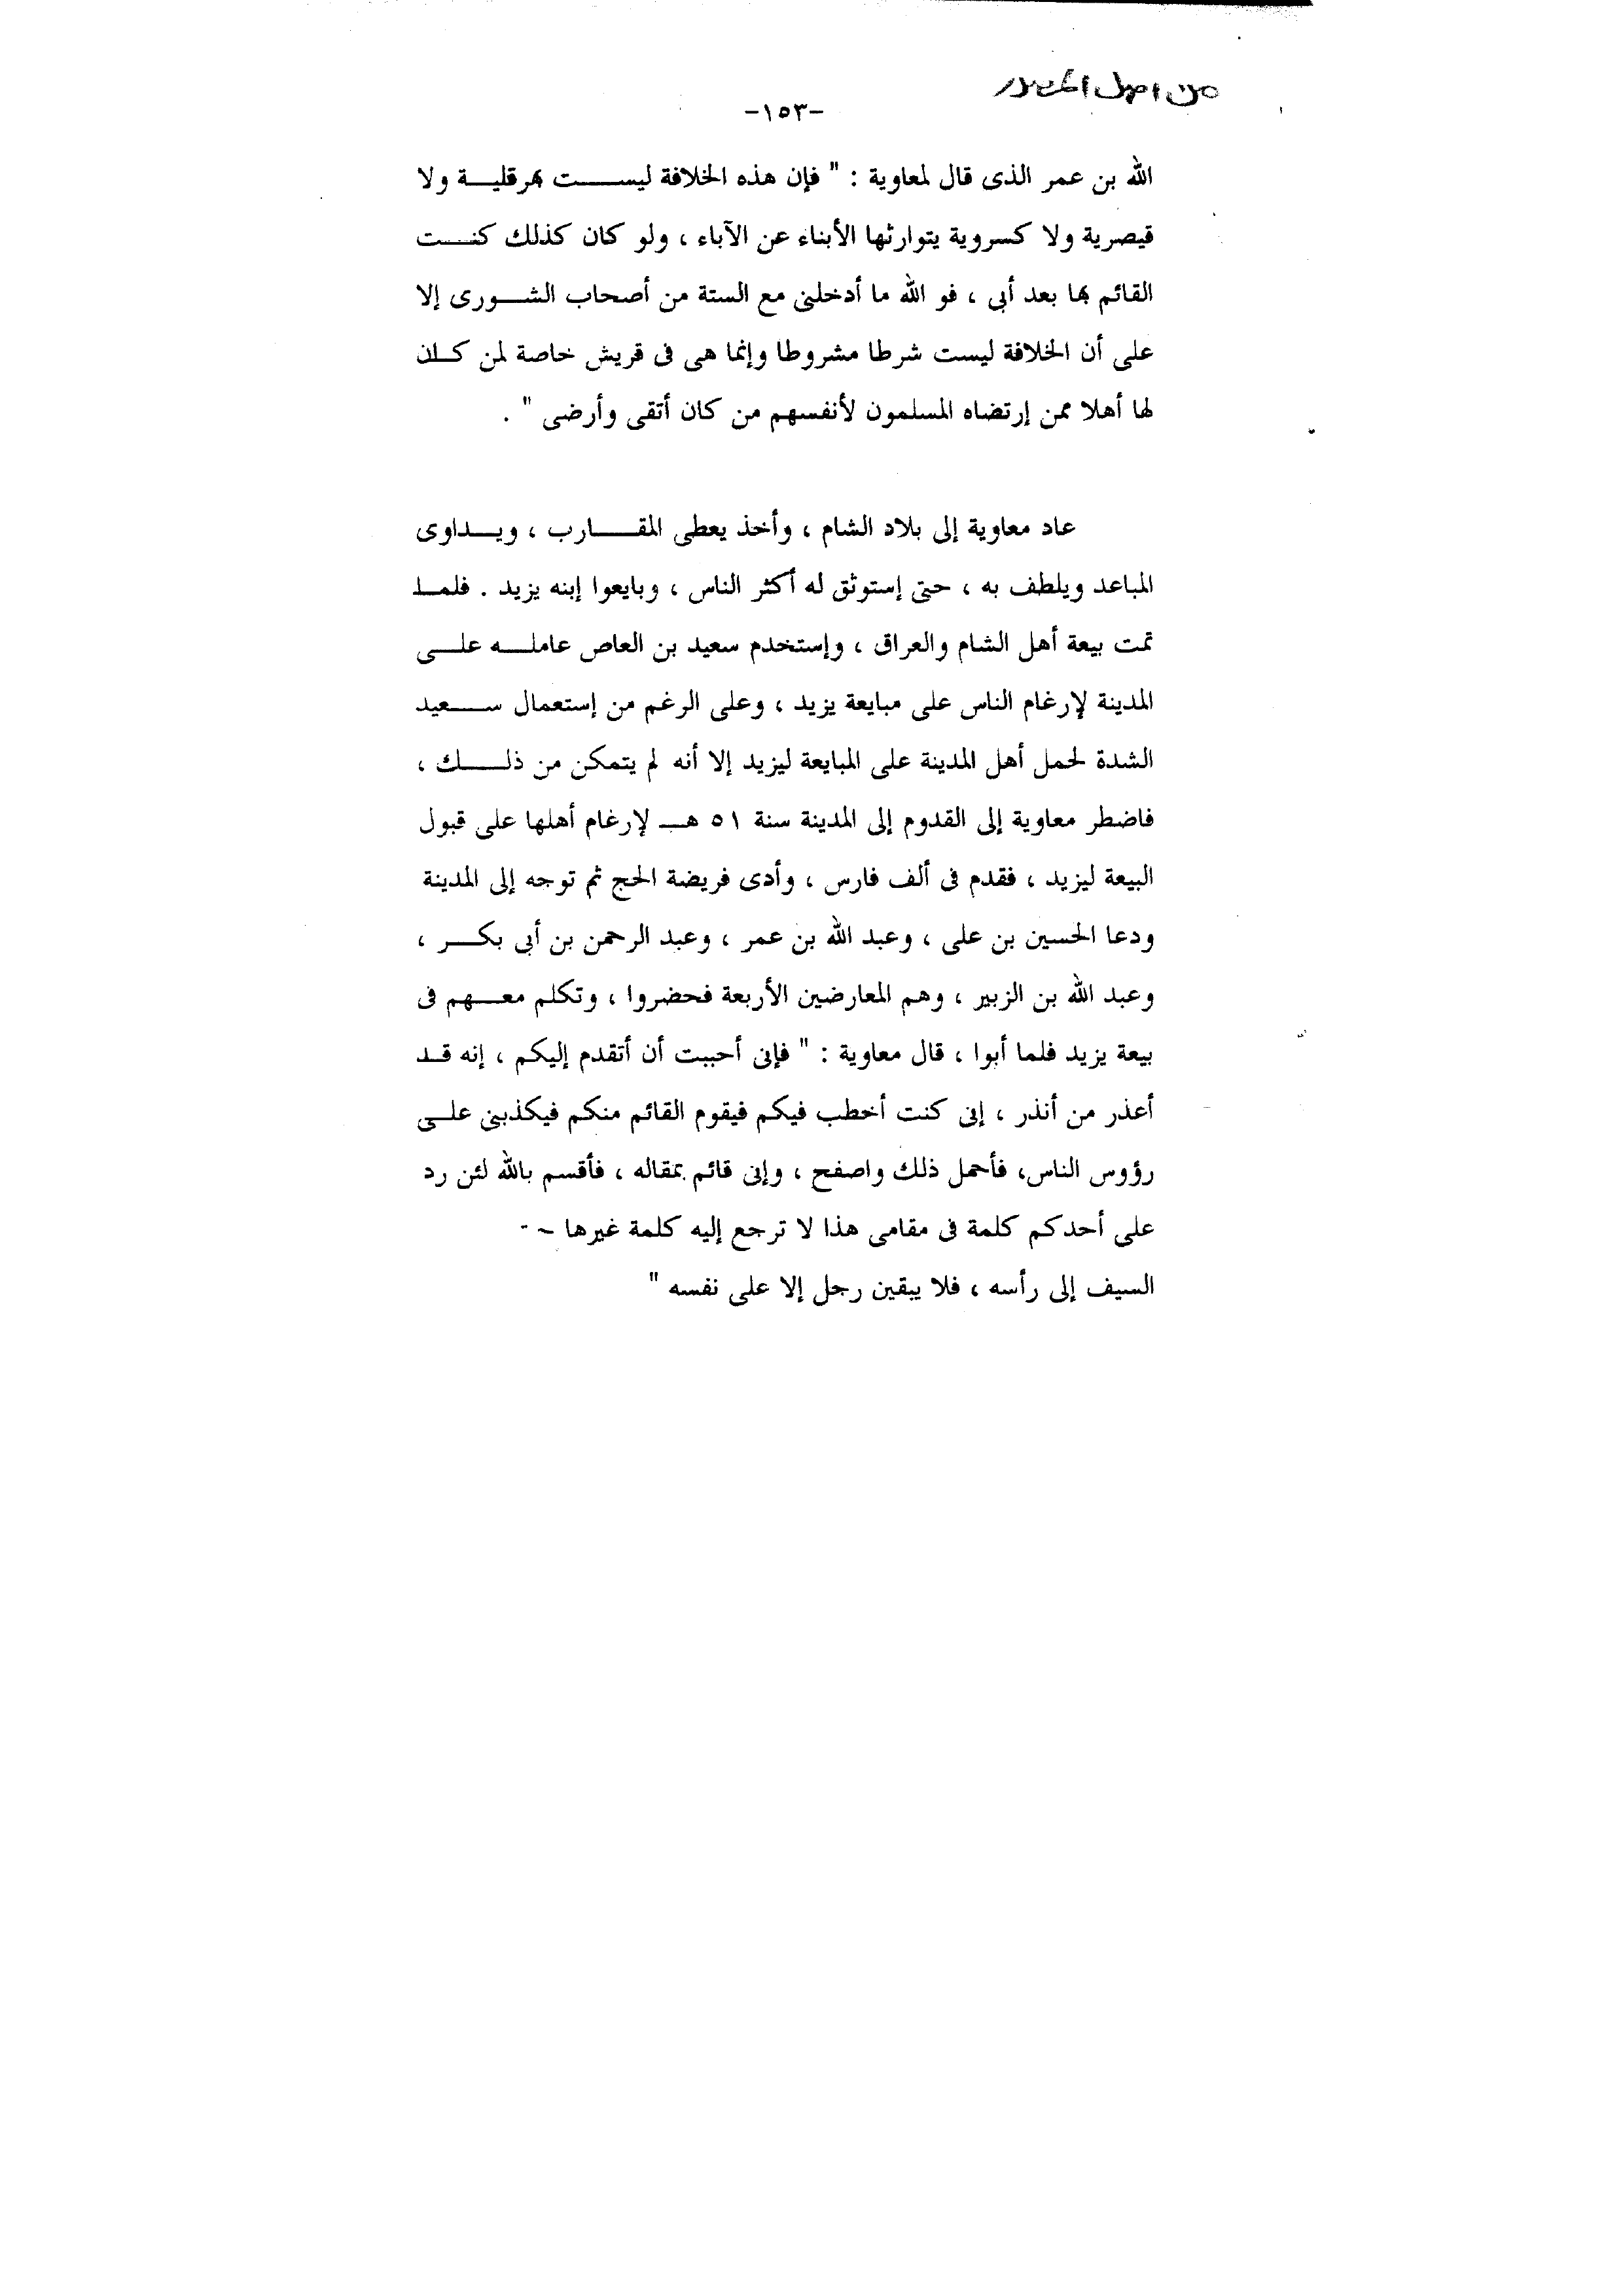 من اصل المصدر
-١٥٣-
الله بن عمر الذى قال لمعاوية : " فإن هذه الخلافة ليست بهرقلية ولا
قيصرية ولا كسروية يتوارثها الأبناء عن الآباء ، ولو كان كذلك كنت
القائم بها بعد أبى ، فو الله ما أدخلنى مع الستة من أصحاب الشورى إلا
على أن الخلافة ليست شرطا مشروطا وإنما هى فى قريش خاصة لمن كان
لها أهلا ممن إرتضاه المسلمون لأنفسهم من كان أتقى وأرضى " .
عاد معاوية إلى بلاد الشام ، وأخذ يعطى المقارب ، ويداوى
المباعد ويلطف به ، حتى إستوثق له أكثر الناس ، وبايعوا إبنه يزيد . فلما
تمت بيعة أهل الشام والعراق ، وإستخدم سعيد بن العاص عامله على
المدينة لإرغام الناس على مبايعة يزيد ، وعلى الرغم من إستعمال سعيد
الشدة لحمل أهل المدينة على المبايعة ليزيد إلا أنه لم يتمكن من ذلك ،
فاضطر معاوية إلى القدوم إلى المدينة سنة ٥١ هـ لإرغام أهلها على قبول
البيعة ليزيد ، فقدم فى ألف فارس ، وأدى فريضة الحج ثم توجه إلى المدينة
ودعا الحسين بن على ، وعبد الله بن عمر ، وعبد الرحمن بن أبى بكر ،
وعبد الله بن الزبير ، وهم المعارضين الأربعة فحضروا ، وتكلم معهم فى
بيعة يزيد فلما أبوا ، قال معاوية : " فإنى أحببت أن أتقدم إليكم ، إنه قد
أعذر من أنذر ، إنى كنت أخطب فيكم فيقوم القائم منكم فيكذبنى على
رؤوس الناس، فأحمل ذلك واصفح ، وإنى قائم بمقاله ، فأقسم بالله لئن رد
على أحدكم كلمة فى مقامى هذا لا ترجع إليه كلمة غيرها
السيف إلى رأسه ، فلا يبقين رجل إلا على نفسه "